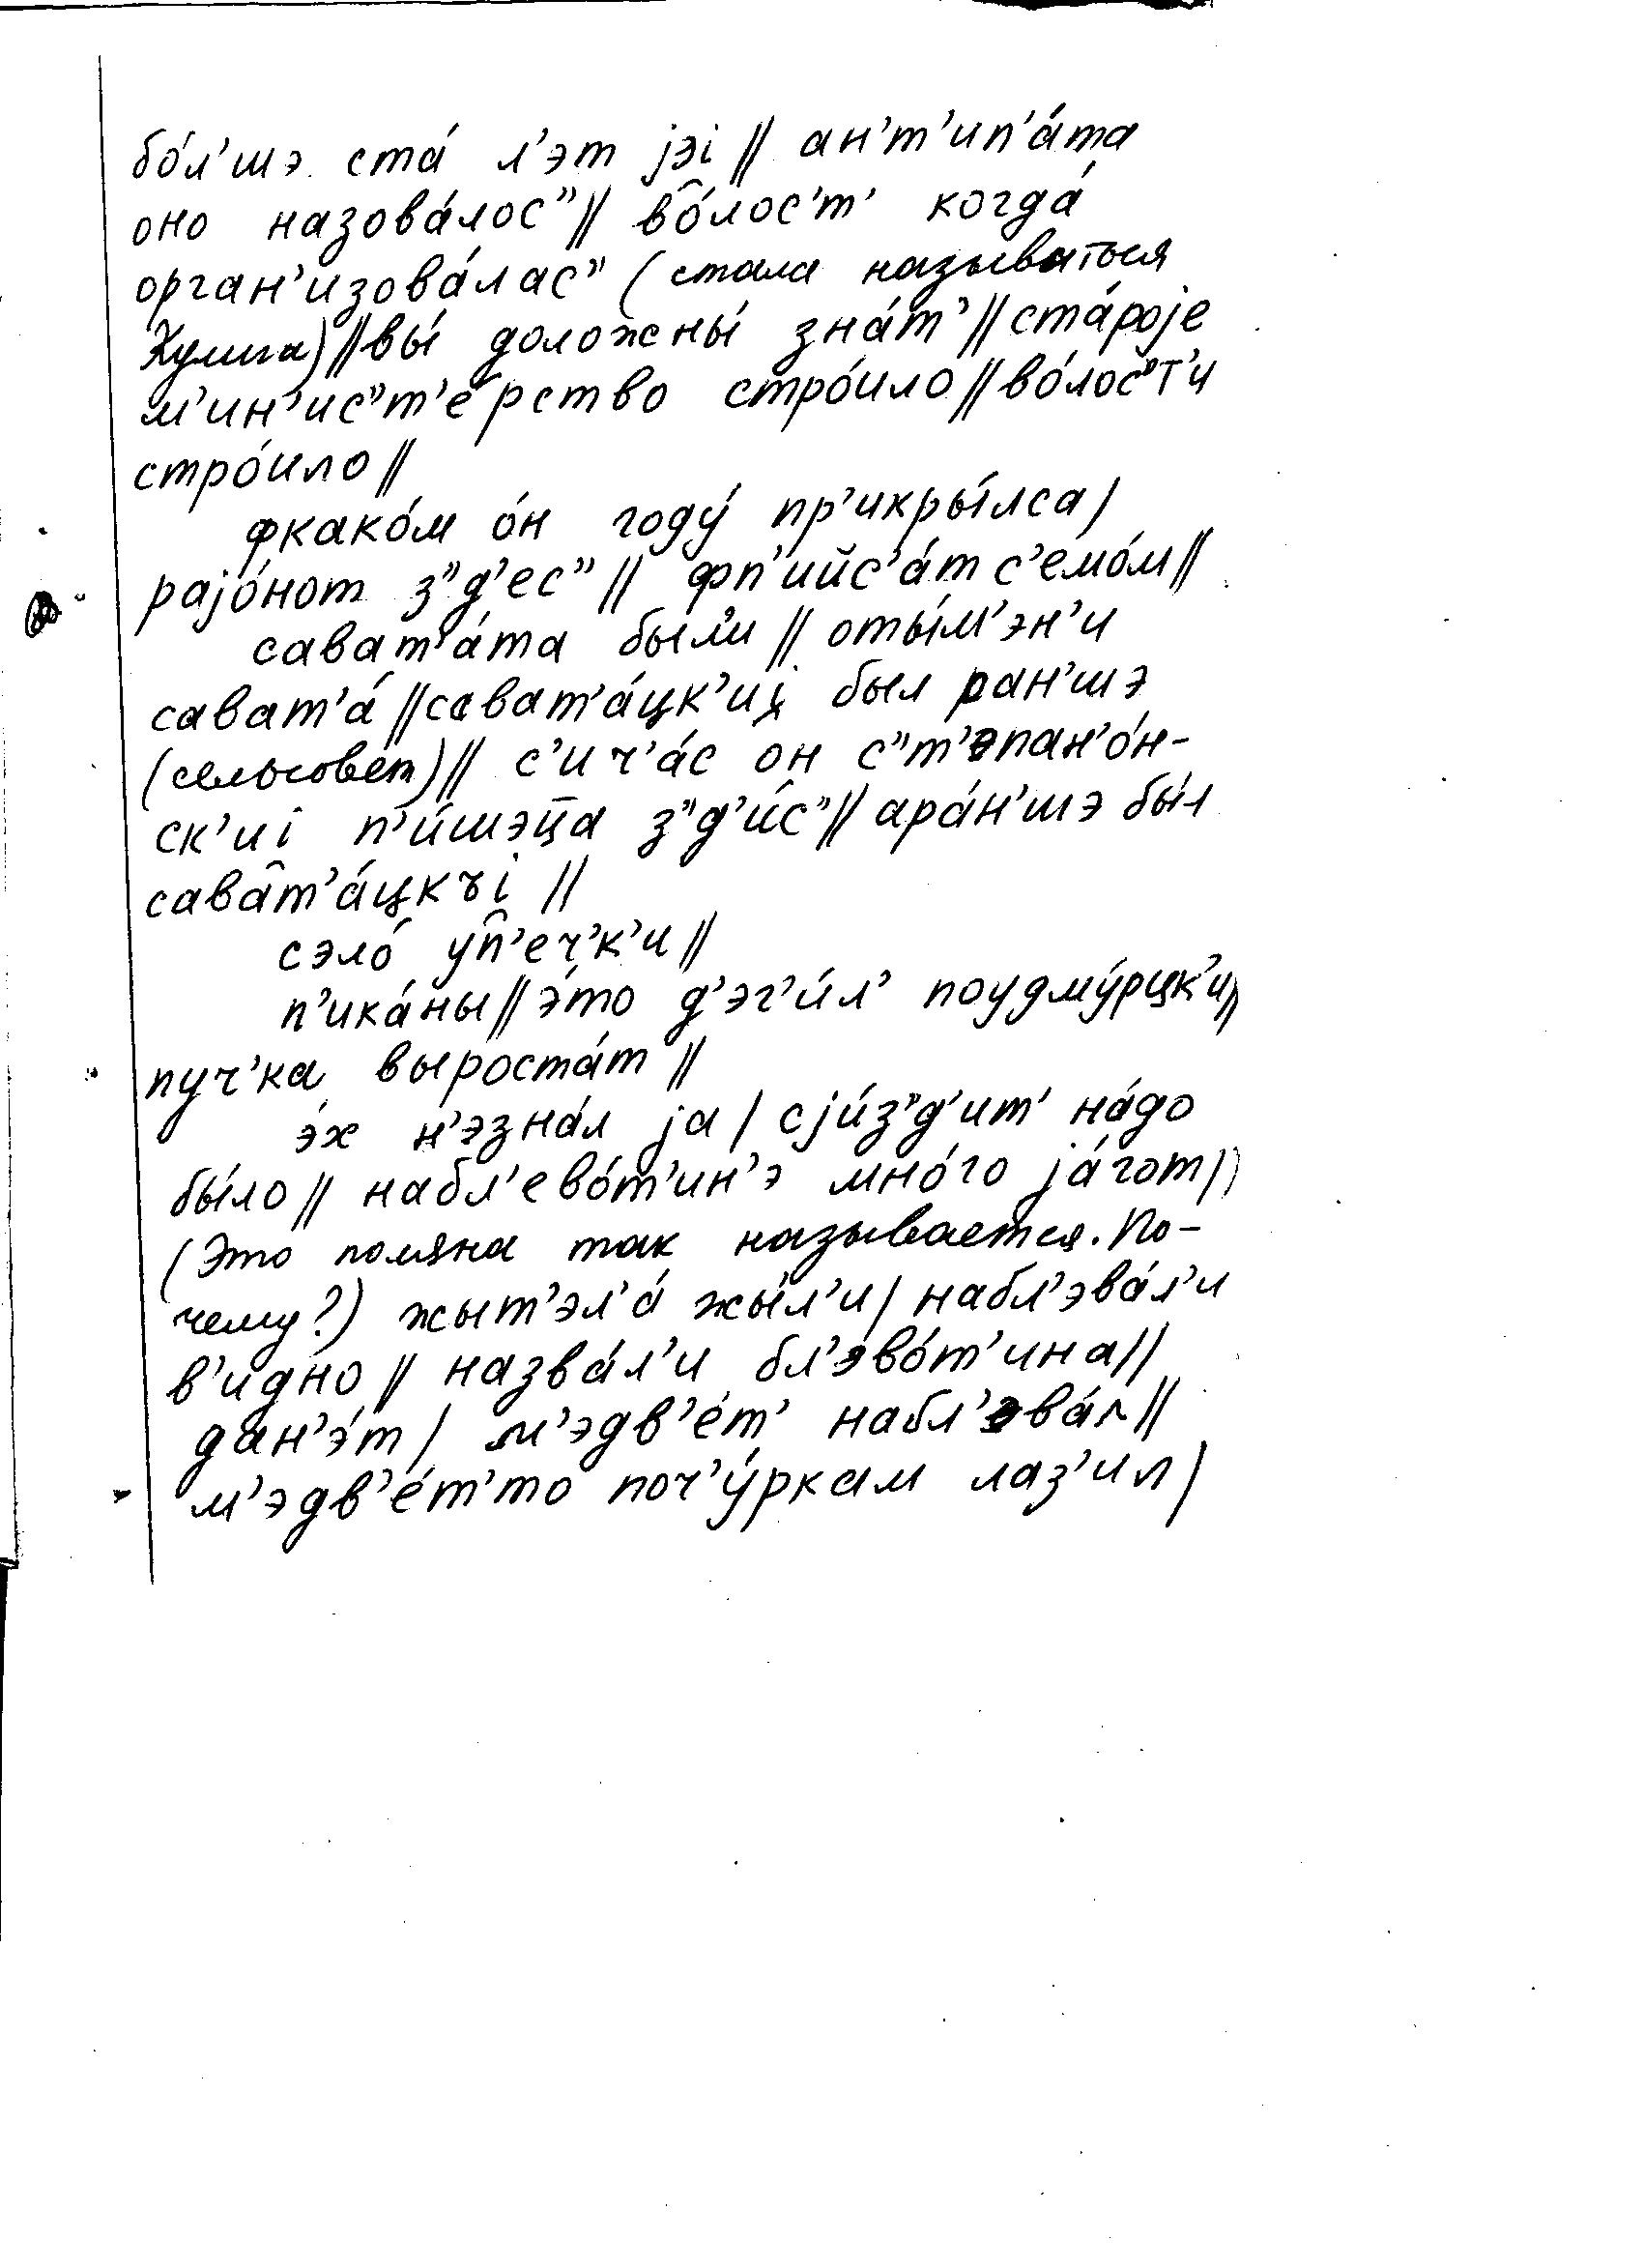 бо́л'шэ ста́ л'эт jэi || ан'т'ип'а́та
оно назова́лос" || во̂́лос'т' когда́
орган'изова́лас" (стала называться
Кулига) || вы́ доложны́ зна́т' || ста́роjе
м'ин'ис"т'е́рство стро́ило || во́лос"т'и
стро́ило ||
фкако́м о́н году́ пр'икры́лса /
раjо́нот з"д'ес" || фп'ийс'а́т с'емо́м ||
сават'а́та был'и || оты́м'эн'и
сават'а́ || сават'а́цк'иi был ран'шэ
(сельсовет) || с'ич'а́с он с"т'эпан'о́н-
ск'иi п'и́шэца з"д'и̂с" || ара́н'шэ бы́л
сава̂т'а́цкъi ||
сэло́ уп̂'еч'к'и ||
п'ика́ны || э́то д'эг'и́л' поудму́рцк'и ||
пуч'ка выроста́т ||
э́х н'эзна́л jа / сjи́з"д'ит' на́до
бы́ло || набл'ево́т'ин'э мно́го jа́гот ||
(Это поляна так называется. По-
чему?) жыт'эл'а́ жы́л'и / набл'эва́л'и
в'и́дно || назва́л'и бл'эво́т'ина ||
дан'э́т / м'эдв'е́т' набл'эва́л ||
м'эдв'е́т'то поч'у́ркам лаз'ил /